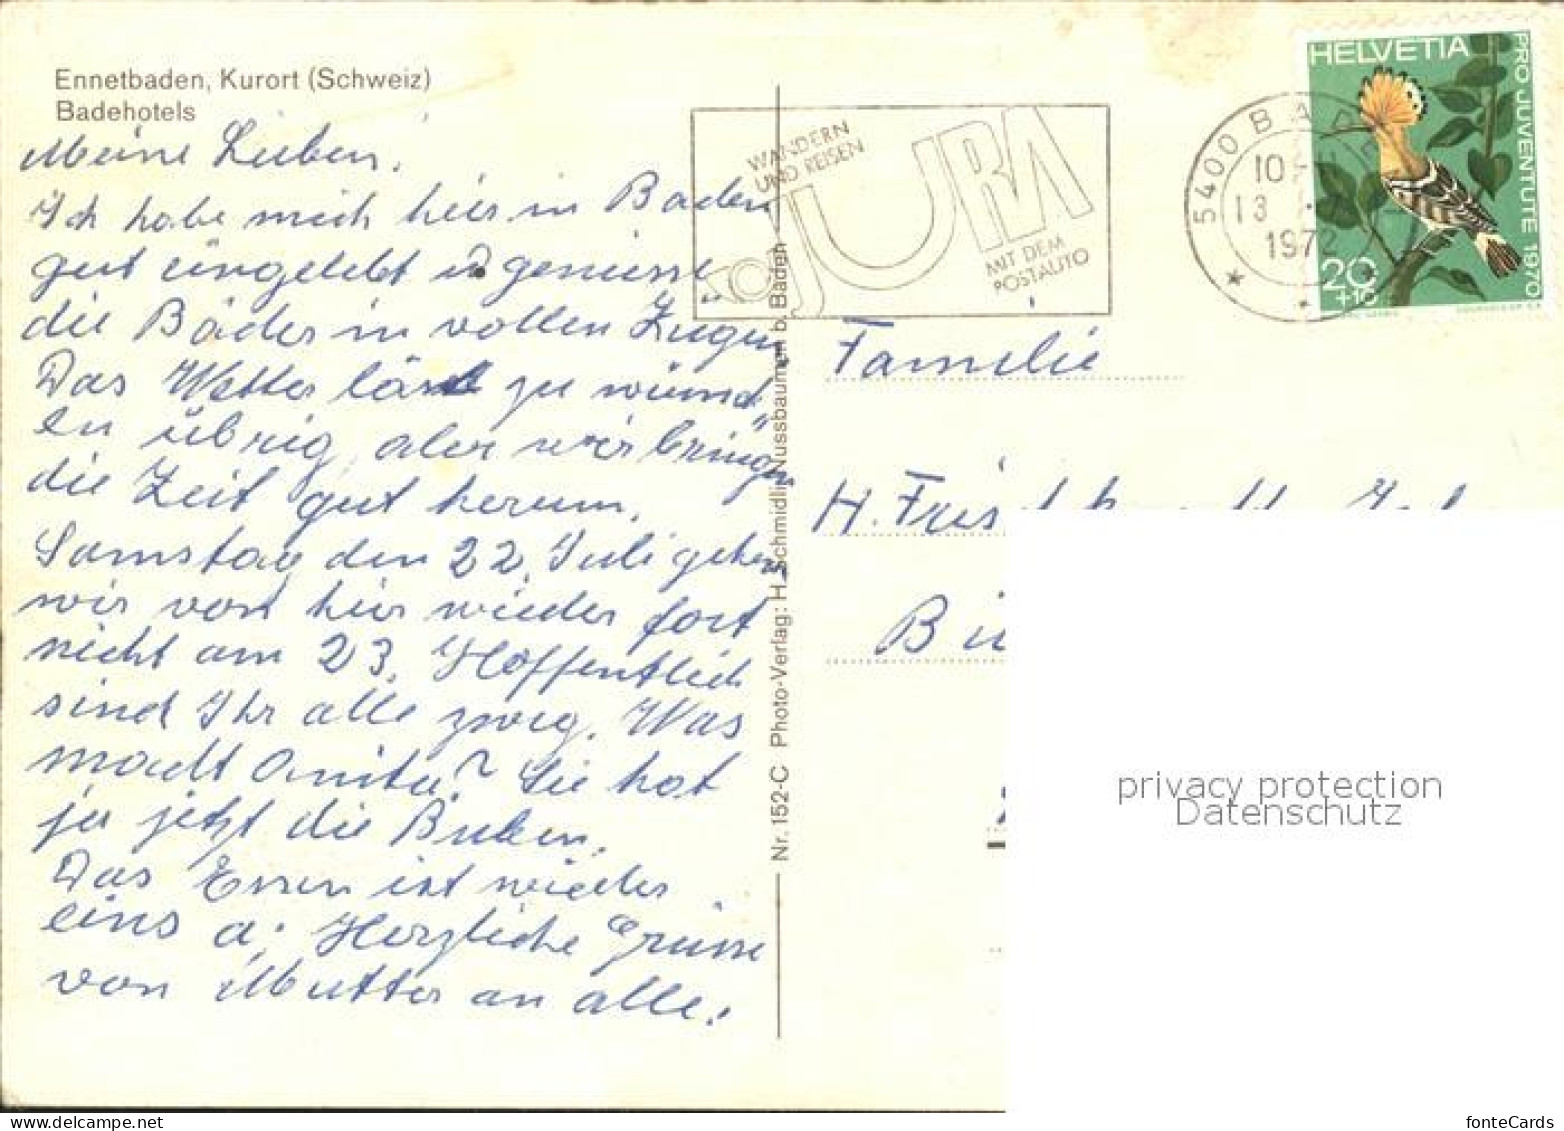 Ennetbaden, Kurort (Schweiz)
Badehotels
Meine Lieben.
Ich habe mich hier in Baden
gut eingelebt u geniesse
die Bäder in vollen Zügen
Das Wetter lässt zu wünsch
en übrig aber wir bringen
die Zeit gut herum.
Samstag den 22. Juli gehen
wir von hier wieder fort
nicht am 23. Hoffentlich
sind Ihr alle zweg. Was
macht Anita? Sie hat
ja jetzt die
Das Essen ist wieder
eins a. Herzliche Grüsse
von Mutter an alle!
Nr. 152-C Photo-Verlag: H. Schmidlin Nussbaumen b. Baden
WANDERN
UND REISEN
JURA
MIT DEM
POSTAUTO
5400 BADEN
13
1972
HELVETIA
PRO JUVENTUTE 1970
20
+10
Familie
H.
privacy protection
Datenschutz
fonteCards